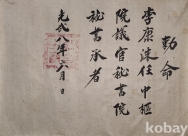 勅命
李康洙任中樞
院議官祕書院
祕書承者
光武八年六月 日
kobay